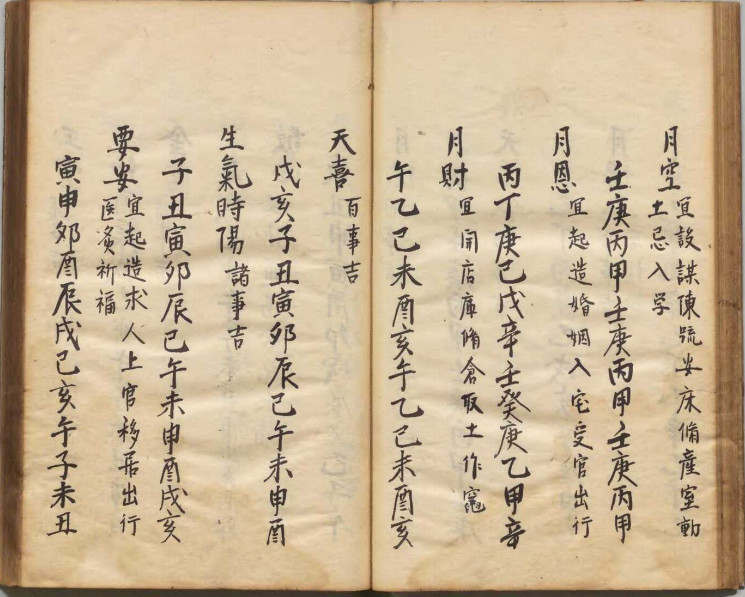 月空 宜設謀陳疏安床脩產室動
土忌入学
壬庚丙甲壬庚丙甲壬庚丙甲
月恩 宜起造婚姻入宅受官出行
丙丁庚己戊辛壬癸庚乙甲辛
月財 宜開店庫脩倉取土作竈
午乙巳未酉亥午乙巳未酉亥
天喜 百事吉
戌亥子丑寅卯辰巳午未申酉
生氣時陽 諸事吉
子丑寅卯辰巳午未申酉戌亥
要安 宜起造求人上官移居出行
医灸祈福
寅申卯酉辰戌巳亥午子未丑